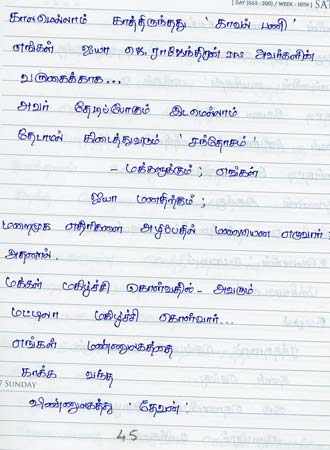 [ DAY (065 - 300) / WEEK - 10TH ] SAT
காலமெல்லாம் காத்திருந்தது ' காவல் பணி '
எங்கள் ஐயா செ. ராஜேந்திரன் அவர்களின்
வருகைக்காக...
அவர் தேடிப்போகும் இடமெல்லாம்
தேடாமல் கிடைத்துவரும் ' சந்தோசம் '
- மக்களுக்கும் ; எங்கள்
ஐயா மனதிற்கும் ;
மறைமுக எதிரிகளை அழிப்பதில் மலையென எழுவார் :
அதனால்.
மக்கள் மகிழ்ச்சி கொள்வதில் - அவரும்
மட்டிலா மகிழ்ச்சி கொள்வார்...
எங்கள் மண்ணுலகத்தை
7 SUNDAY
காக்க வந்த
விண்ணுலகத்து ' தேவன் '
45